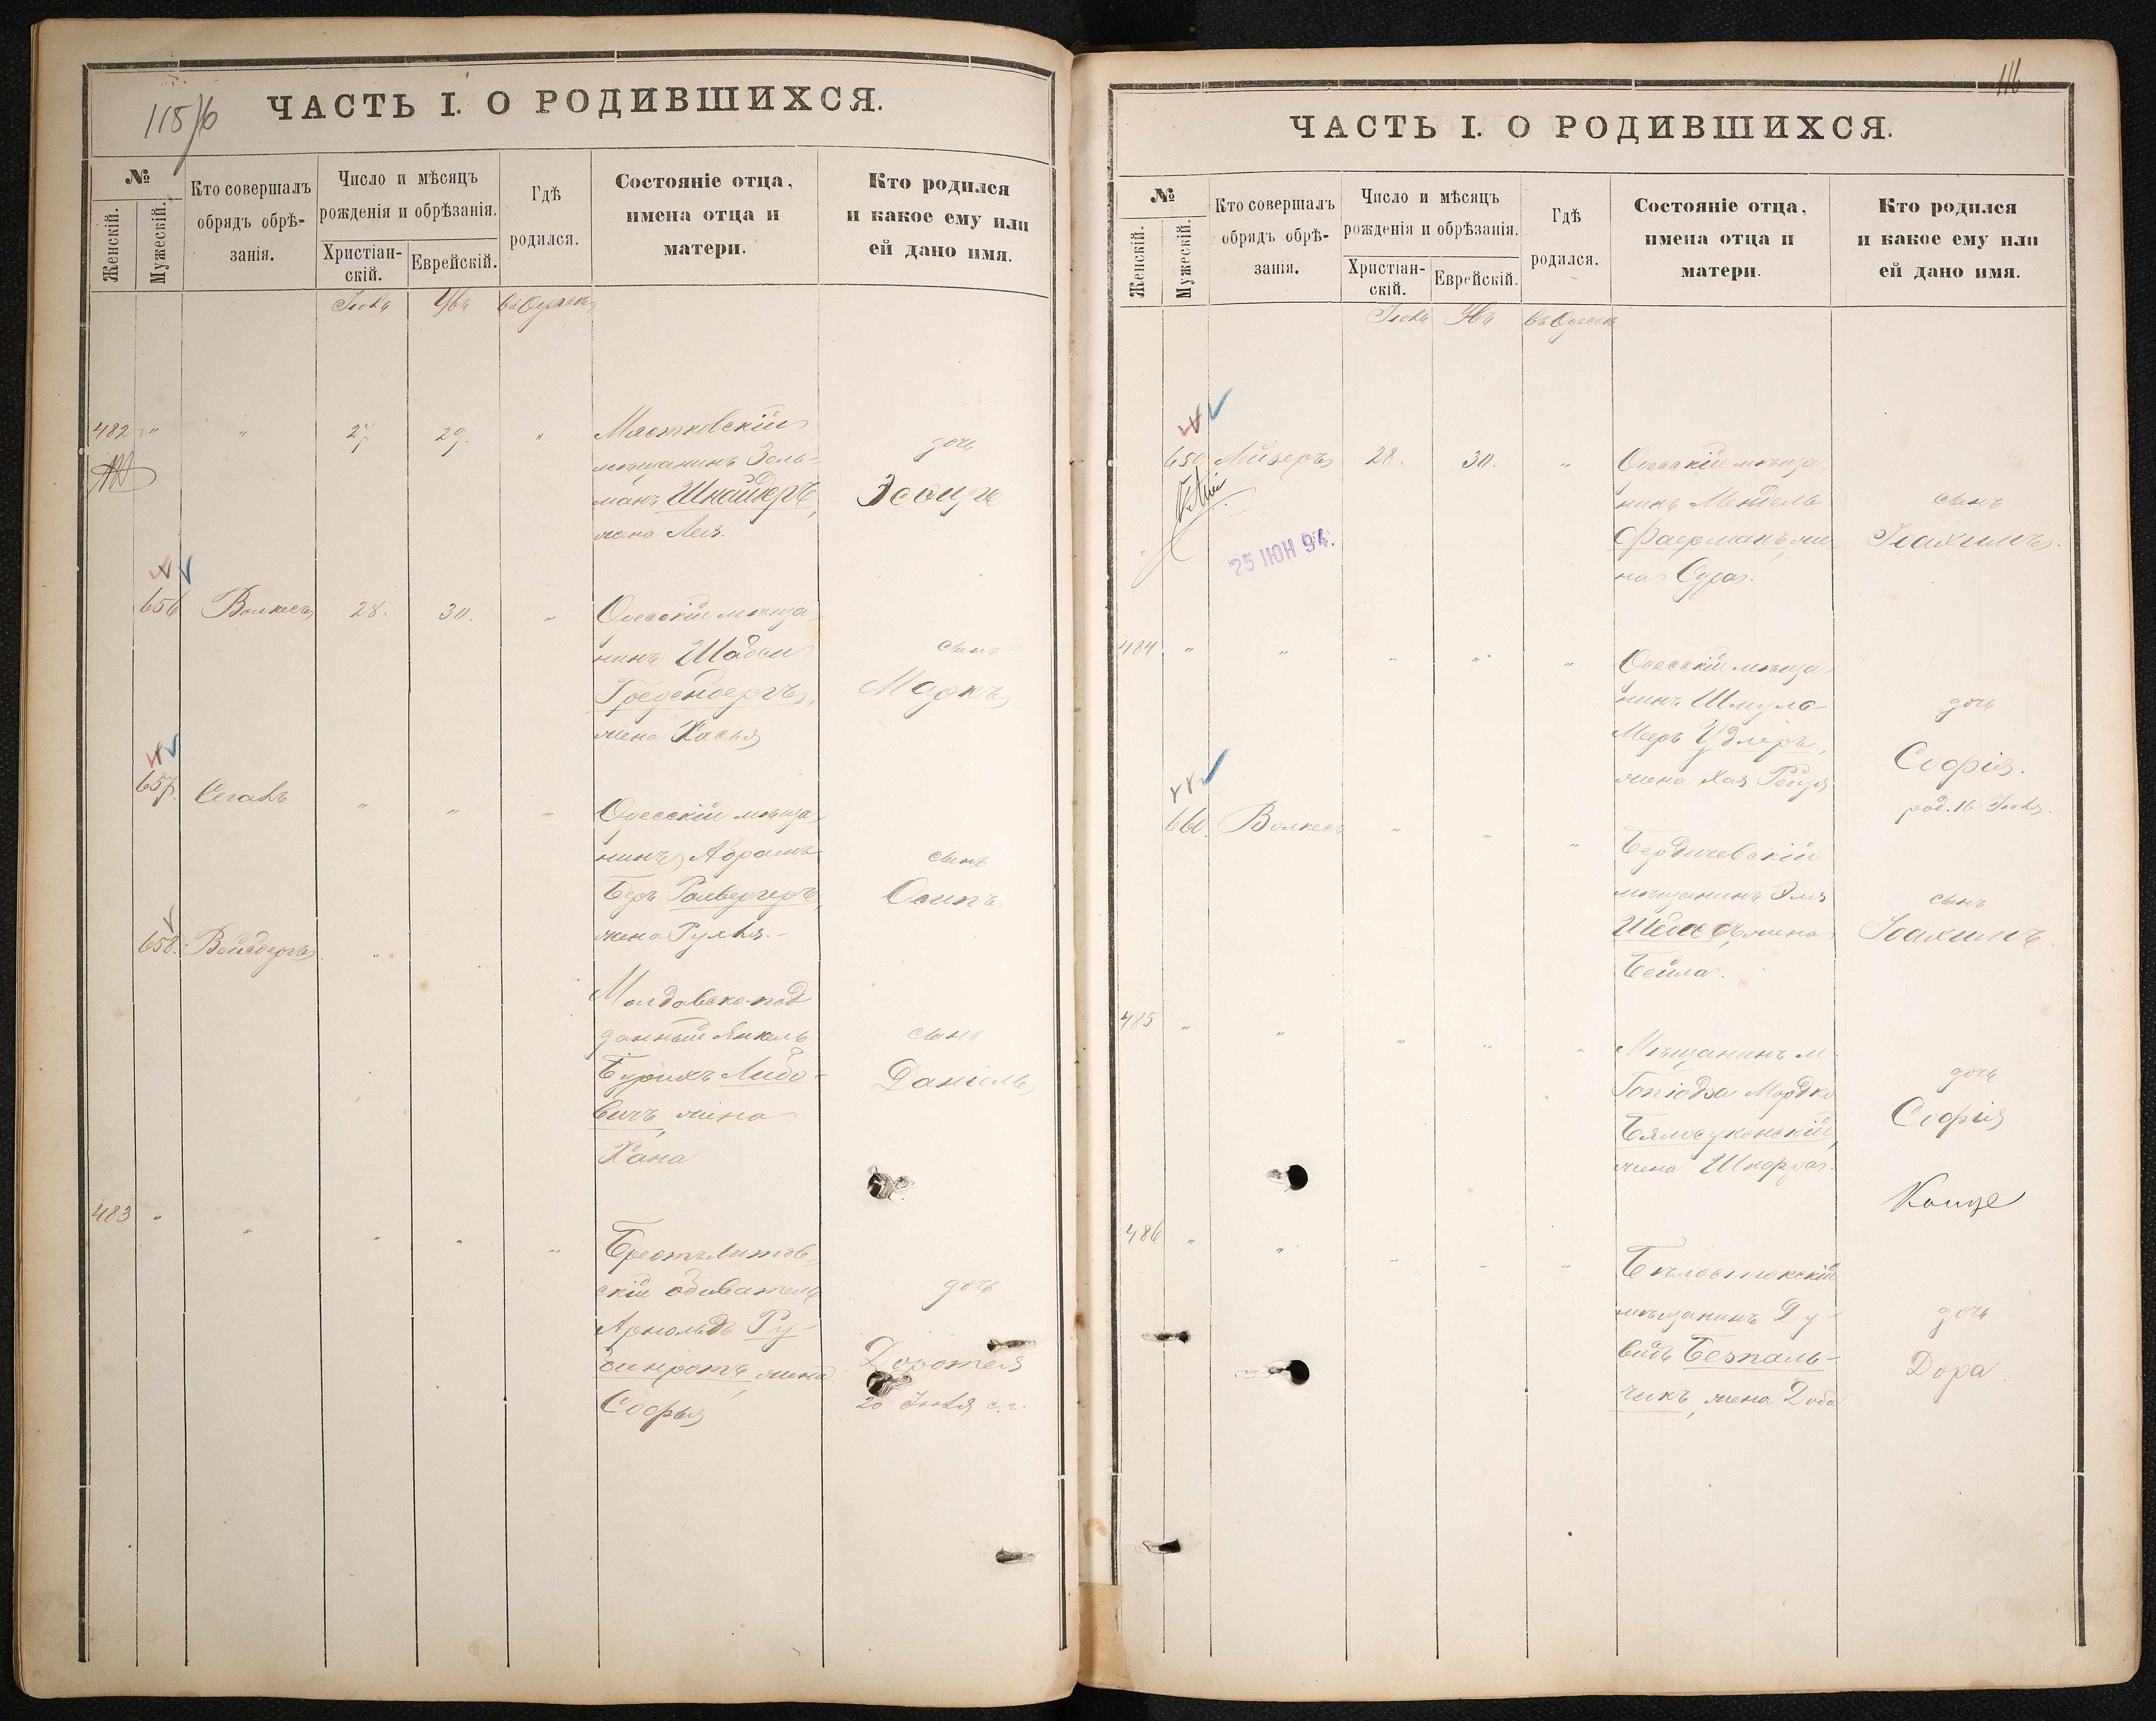 115/6
ЧАСТЬ I. О РОДИВШИХСЯ.
№
Женскій.
Мужескій.
Кто совершалъ
обрядъ обрѣ-
занія.
Число и мѣсяцъ
рожденія и обрѣзанія.
Христіан-
скій.
Еврейскій.
Гдѣ
родился.
Состояніе отца,
имена отца и
матери.
Кто родился
и какое ему или
ей дано имя.
Іюль Увъ въ Одессѣ
482 " " 27 29. "
Мястковскій
мѣщанинъ Зель-
манъ Шнайдеръ,
жена Лея.
дочь
Эсѳирь
656 Волкесъ 28. 30. "
Одесскій мѣща
нинъ Шабси
Греденбергъ,
жена Хасья
сынъ
Маркъ
657. Сегалъ " " "
Одесскій мѣща
нинъ Абрамъ
Беръ
жена Рухля.
сынъ
Осипъ
658. Вейсбергъ "
Молдавско-под
данный Янкель
Бурихъ Либо-
вичъ, жена
Хана
сынъ
Даніель
483 " " " " "
Брестъ-Литов
скій обыватель
Арнольдъ Ру-
бинротъ, жена
Софья
дочь
Доротея
20 Іюля с. г.
116
ЧАСТЬ I. О РОДИВШИХСЯ.
№
Женскій.
Мужескій.
Кто совершалъ
обрядъ обрѣ-
занія.
Число и мѣсяцъ
рожденія и обрѣзанія.
Христіан-
скій.
Еврейскій.
Гдѣ
родился.
Состояніе отца,
имена отца и
матери.
Кто родился
и какое ему или
ей дано имя.
Іюль Увъ въ Одессѣ
659 Айзеръ 28. 30. "
25 ІЮН 94.
Одесскій мѣща
нинъ Мендель
Фаерманъ, же
на Сура.
сынъ
Іоахимъ.
484 " " " " "
Одесскій мѣща
нинъ Шмуль-
Меръ Удлеръ,
жена Хая Рейзя
дочь
Софія.
род. 16 Іюля.
660. Волкесъ " " "
Бердичевскій
мѣщанинъ Эля
жена
Бейла.
сынъ
Іоахимъ
485 " " " " "
Мѣщанинъ м.
Гоніодза Мордко
Бялосуконскій,
жена Шифра.
дочь
Софія
486 " " " " "
Бѣлостокскій
мѣщанинъ Ду-
видъ Безпаль-
чикъ, жена Доба
дочь
Дора.